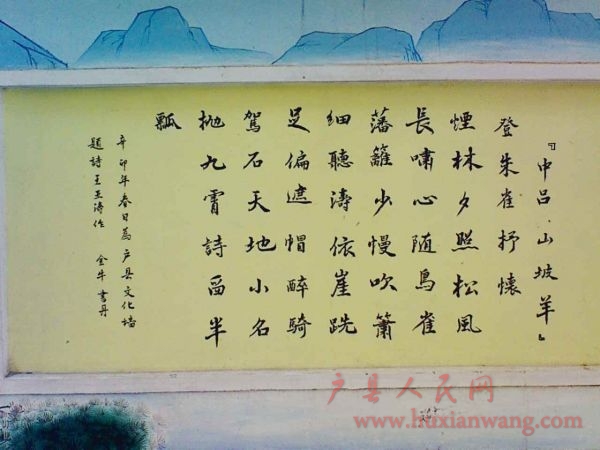 『中吕·山坡羊』
登朱雀抒懷
煙林夕照松風
長嘯心随鳥雀
藩籬少慢吹簫
细聽濤依崖跣
足偏遮帽醉騎
駕石天地小名
抛九霄詩留半
瓢
辛卯年春日為户县文化墙
题詩王涛作 金牛書丹
户县人民网
www.huxianwang.com